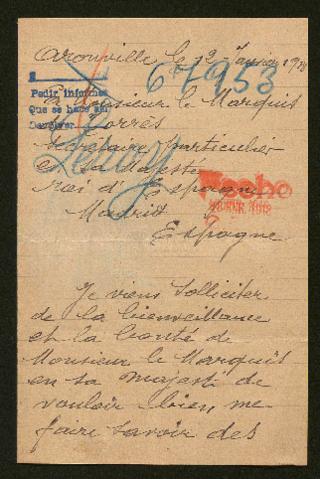 Arouville le 12 Janvier 1918
67953
Pedir informes
Que se hace
Devolver
à Monsieur le Marquis
Torrès
Secrétaire particulier
et sa Majesté
roi d'Espagne
Madrid
Espagne
Leroy
Hecho
Je viens Solliciter
de la bienveillance
et la bonté de
Monsieur le Marquis
en sa majesté de
vouloir bien me
faire savoir des